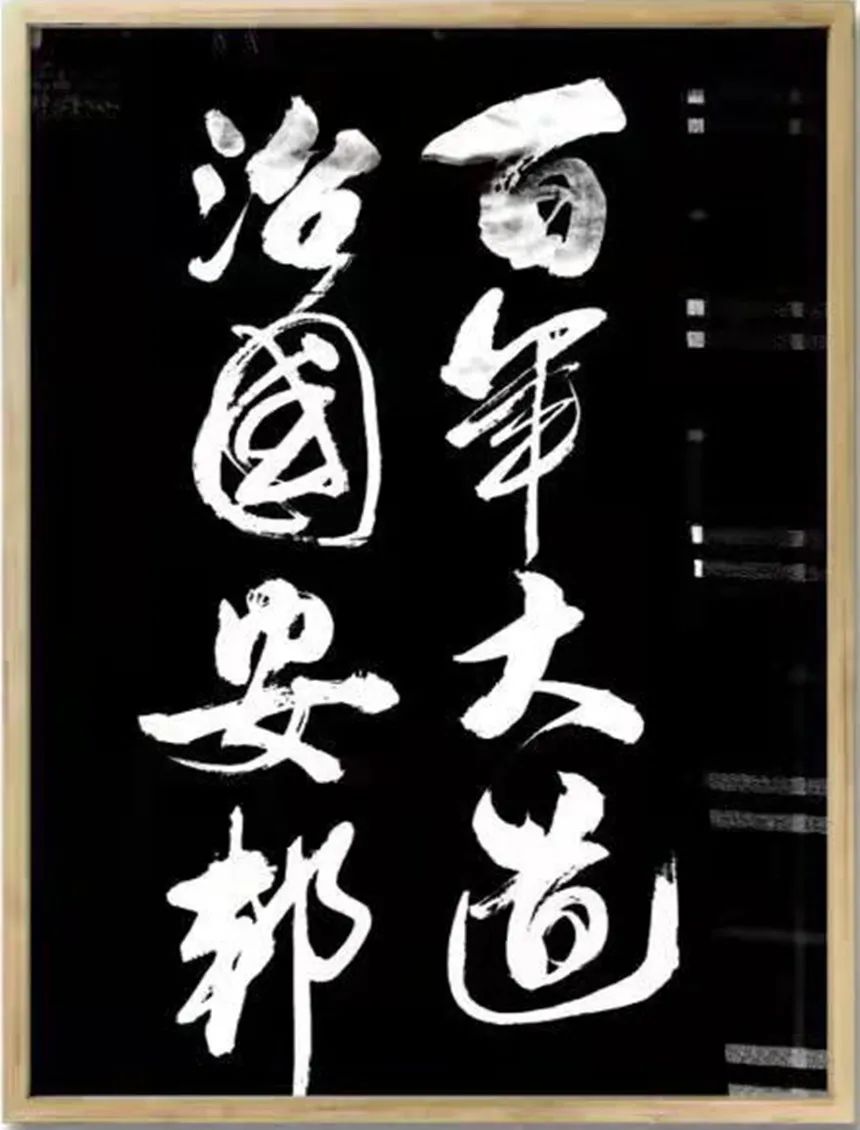 百年大道
治國安邦